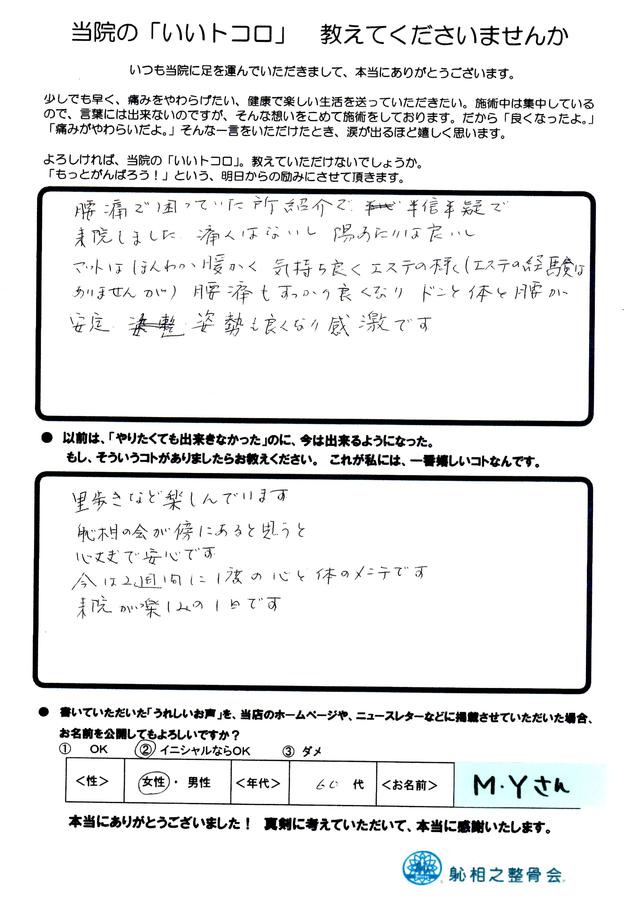 当院の「いいトコロ」　教えてくださいませんか
いつも当院に足を運んでいただきまして、本当にありがとうございます。
少しでも早く、痛みをやわらげたい、健康で楽しい生活を送っていただきたい。施術中は集中している
ので、言葉には出来ないのですが、そんな想いをこめて施術をしております。だから「良くなったよ。」
「痛みがやわらいだよ。」そんな一言をいただけたとき、涙が出るほど嬉しく思います。
よろしければ、当院の「いいトコロ」。教えていただけないでしょうか。
「もっとがんばろう！」という、明日からの励みにさせて頂きます。
腰痛で困っていた所紹介で 半信半疑で
来院しました 痛くはないし 陽あたりは良いし
マットはほんわか暖かく 気持ち良くエステの様(エステの経験は
ありませんが) 腰痛もすっかり良くなり ドンと体と腰が
安定 姿勢も良くなり感激です
● 以前は、「やりたくても出来きなかった」のに、今は出来るようになった。
もし、そういうコトがありましたらお教えください。 これが私には、一番嬉しいコトなんです。
里歩きなど楽しんでいます
恥相の会が傍にあると思うと
心丈夫で安心です
今は2週間に1度の心と体のメンテです
来院が楽しみの1日です
● 書いていただいた「うれしいお声」を、当店のホームページや、ニュースレターなどに掲載させていただいた場合、
お名前を公開してもよろしいですか？
① OK ② イニシャルならOK ③ ダメ
<性> 女性・男性 <年代> 60代 <お名前> M・Yさん
本当にありがとうございました！ 真剣に考えていただいて、本当に感謝いたします。
恥相之整骨会